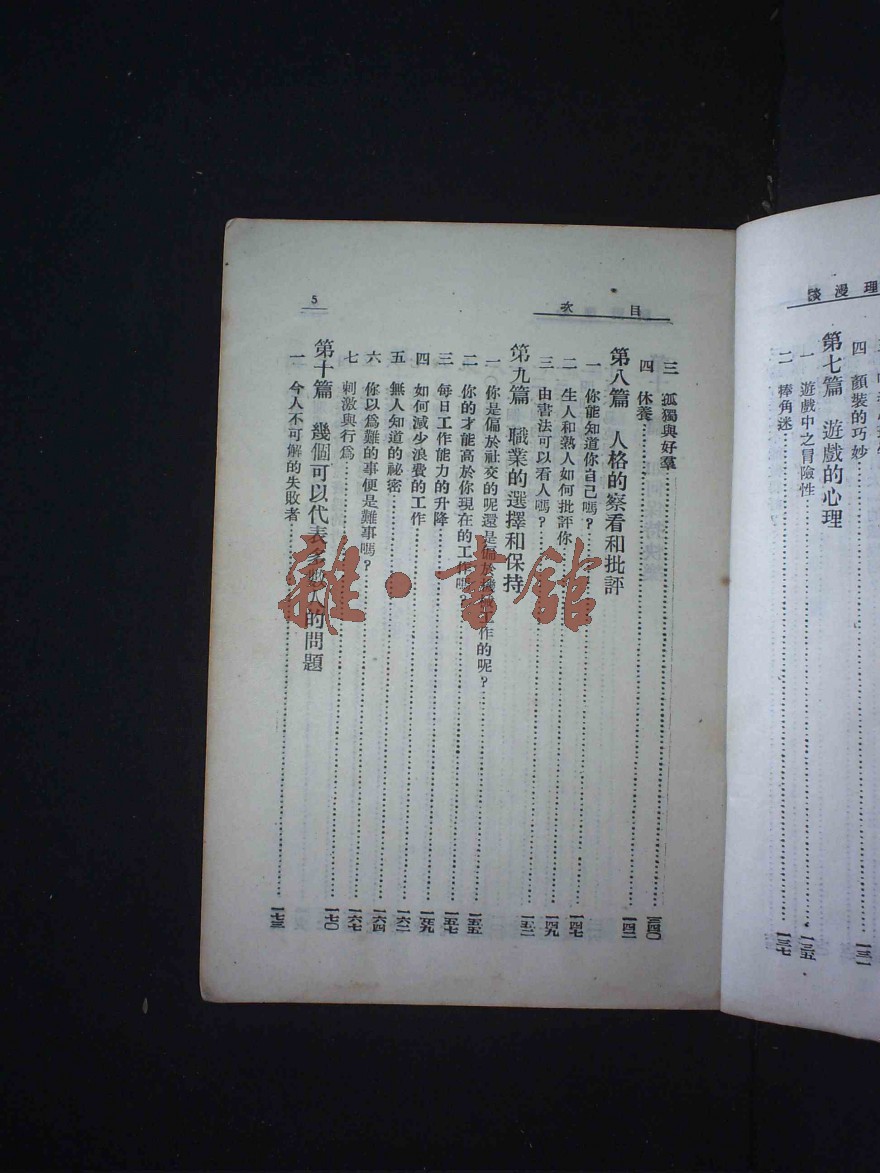 理漫談
四 顏裝的巧妙……一三一
第七篇 遊戲的心理
一 遊戲中之冒險性……一三五
二 棒角迷……一三七
目次
三 孤獨與好羣……一四〇
四 休養……一四二
第八篇 人格的察看和批評
一 你能知道你自己嗎?……一四七
二 生人和熟人如何批評你……一四九
三 由書法可以看人嗎?……一五二
第九篇 職業的選擇和保持
一 你是偏於社交的呢還是偏於工作的呢?……一五五
二 你的才能高於你現在的工作嗎?……一五七
三 每日工作能力的升降……一五九
四 如何減少浪費的工作……一六二
五 無人知道的祕密……一六四
六 你以爲難的事便是難事嗎?……一六七
七 刺激與行爲……一七〇
第十篇 幾個可以代表多數人的問題
一 令人不可解的失敗者……一七三
5
雜·書館